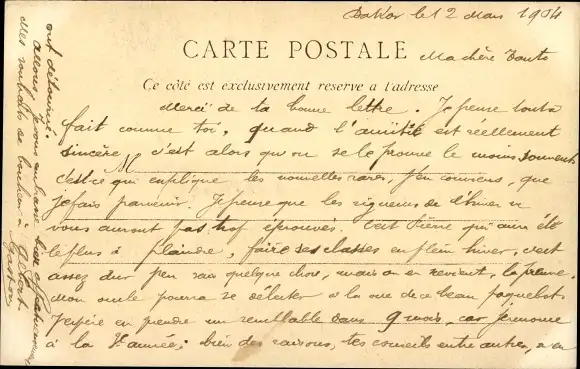 Dakar le 12 Mars 1904
CARTE POSTALE
Ma chère Tante
Ce côté est exclusivement reservé a l'adresse
Merci de ta bonne lettre. Je pense tout a
fait comme toi, quand l'amitié est réellement
sincère, c'est alors qu'on se le prouve le moins souvent
M
c'est ce qui explique les nouvelles rares, j'en conviens, que
je fais parvenir. Je pense que les rigueurs de l'hiver ne
vous auront pas trop éprouvés. C'est Pierre qui aura été
le plus à plaindre, faire ses classes en plein hiver, c'est
assez dur j'en sais quelque chose, mais on en revient, la preuve.
Mon oncle pourra se délecter a la vue de ce beau paquebot
J'espère en prendre un semblable dans 9 mois, car je renonce
à la année; bien des raisons, tes conseils entre autres, m'en
ont détourné.
Allons, je vous embrasse bien
Mes souhaits de bonheur à Albert
Gaston